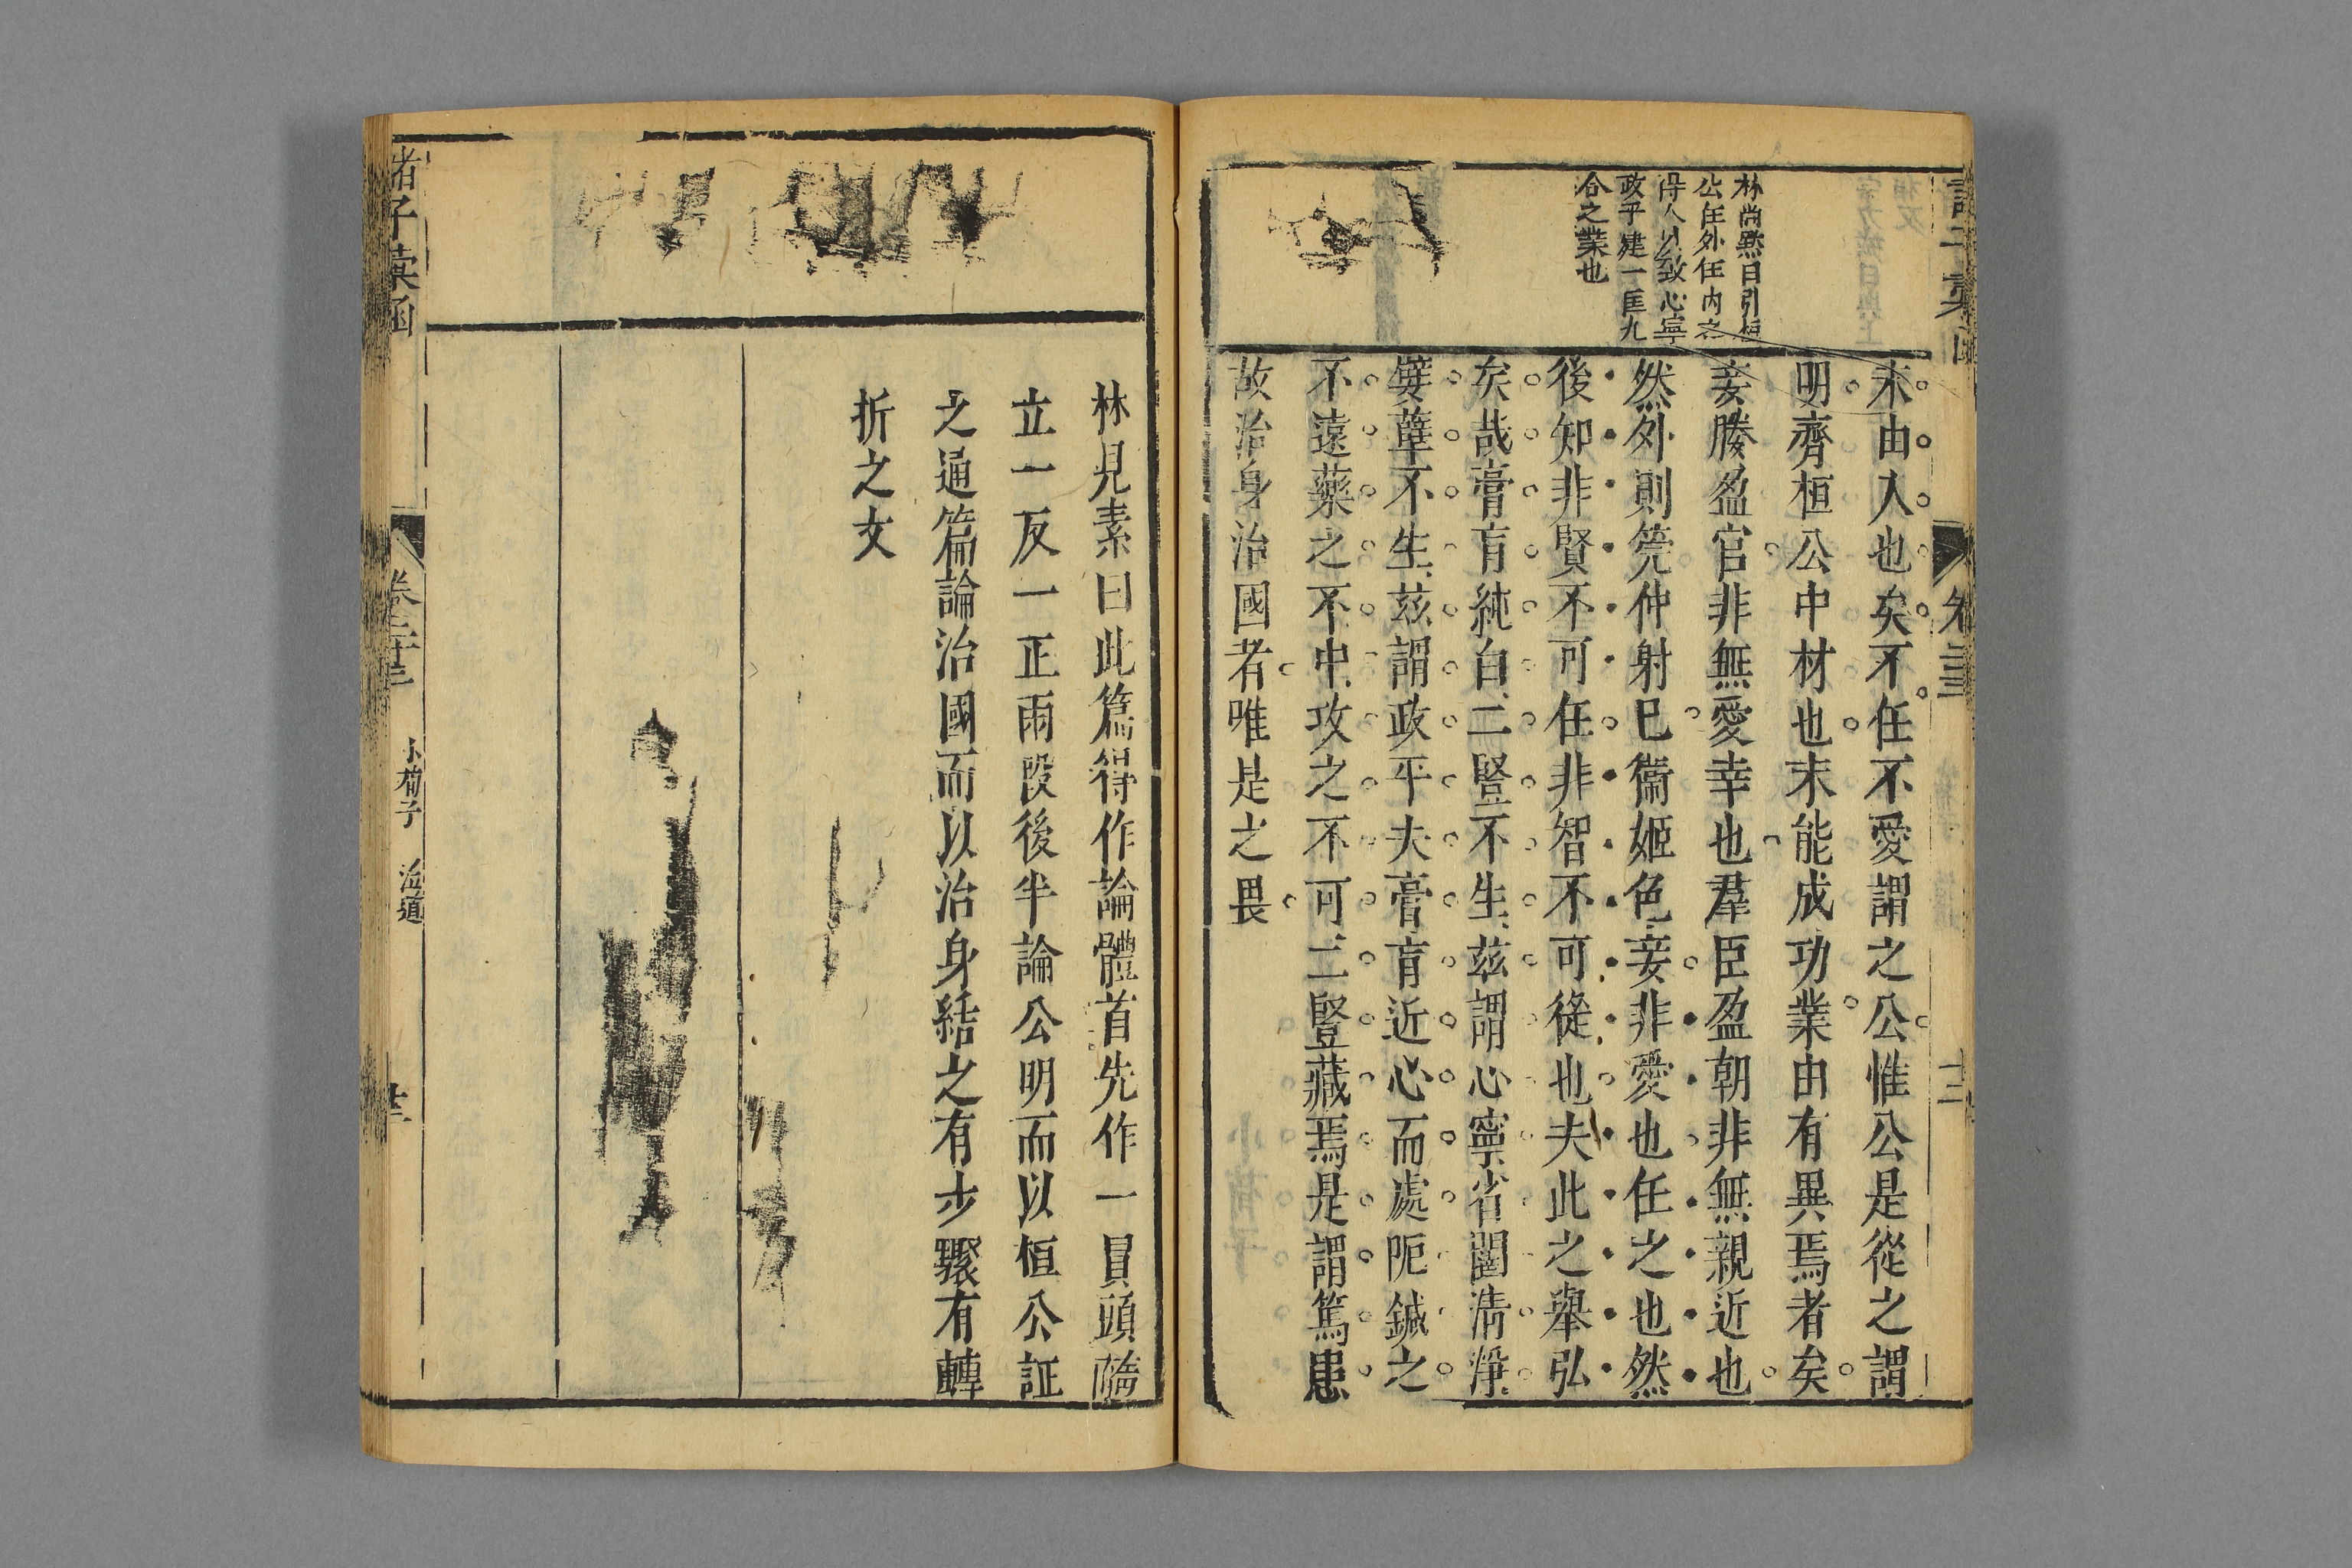 林尚默曰引桓
公任外任内之
得人以致心寧
政平建一匡九
合之業也
末由入也矣不任不愛謂之公惟公是從之謂
明齊桓公中材也末能成功業由有異焉者矣
妾媵盈官非無愛幸也羣臣盈朝非無親近也
然外則筦仲射巳衞姬色妾非愛也任之也然
後知非賢不可任非智不可從也夫此之舉弘
矣哉膏肓純白二豎不生茲謂心寧省闥清淨
嬖孽不生茲謂政平夫膏肓近心而處阨鍼之
不遠藥之不中攻之不可二豎藏焉是謂篤患
故治身治國者唯是之畏
林見素曰此篇得作論體首先作一冐頭隨
立一反一正兩段後半論公明而以桓公証
之通篇論治國而以治身結之有步驟有轉
折之文
諸子彙函
卷二十三
小荀子
治道